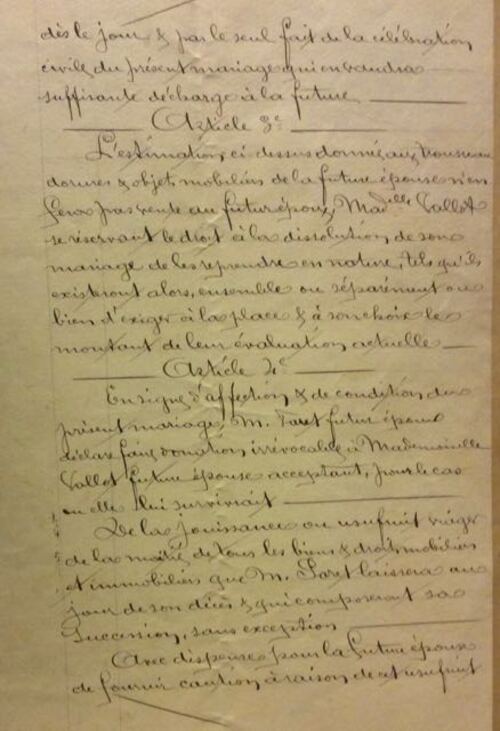 dès le jour & par le seul fait de la célébration
civile du présent mariage qui en vaudra
suffisante décharge à la future
Article 3e
L'estimation ci dessus donnée aux trousseau
dorures & objets mobiliers de la future épouse n'en
fera pas vente au futur époux, Madelle Vallot
se réservant le droit à la dissolution de son
mariage de les reprendre en nature, tels qu'ils
existeront alors, ensemble ou séparément ou
bien d'exiger à la place & à son choix le
montant de leur évaluation actuelle
Article 4e
En signe d'affection & de condition du
présent mariage, M. Faret futur époux
déclare faire donation irrévocable à Mademoiselle
Vallot future épouse acceptant, pour le cas
où elle lui survivrait
De la jouissance ou usufruit viager
de la moitié de tous les biens & droits mobiliers
et immobiliers que M. Faret laissera au
jour de son décès & qui composeront sa
succession, sans exception
Avec dispense pour la future épouse
de fournir caution à raison de cet usufruit